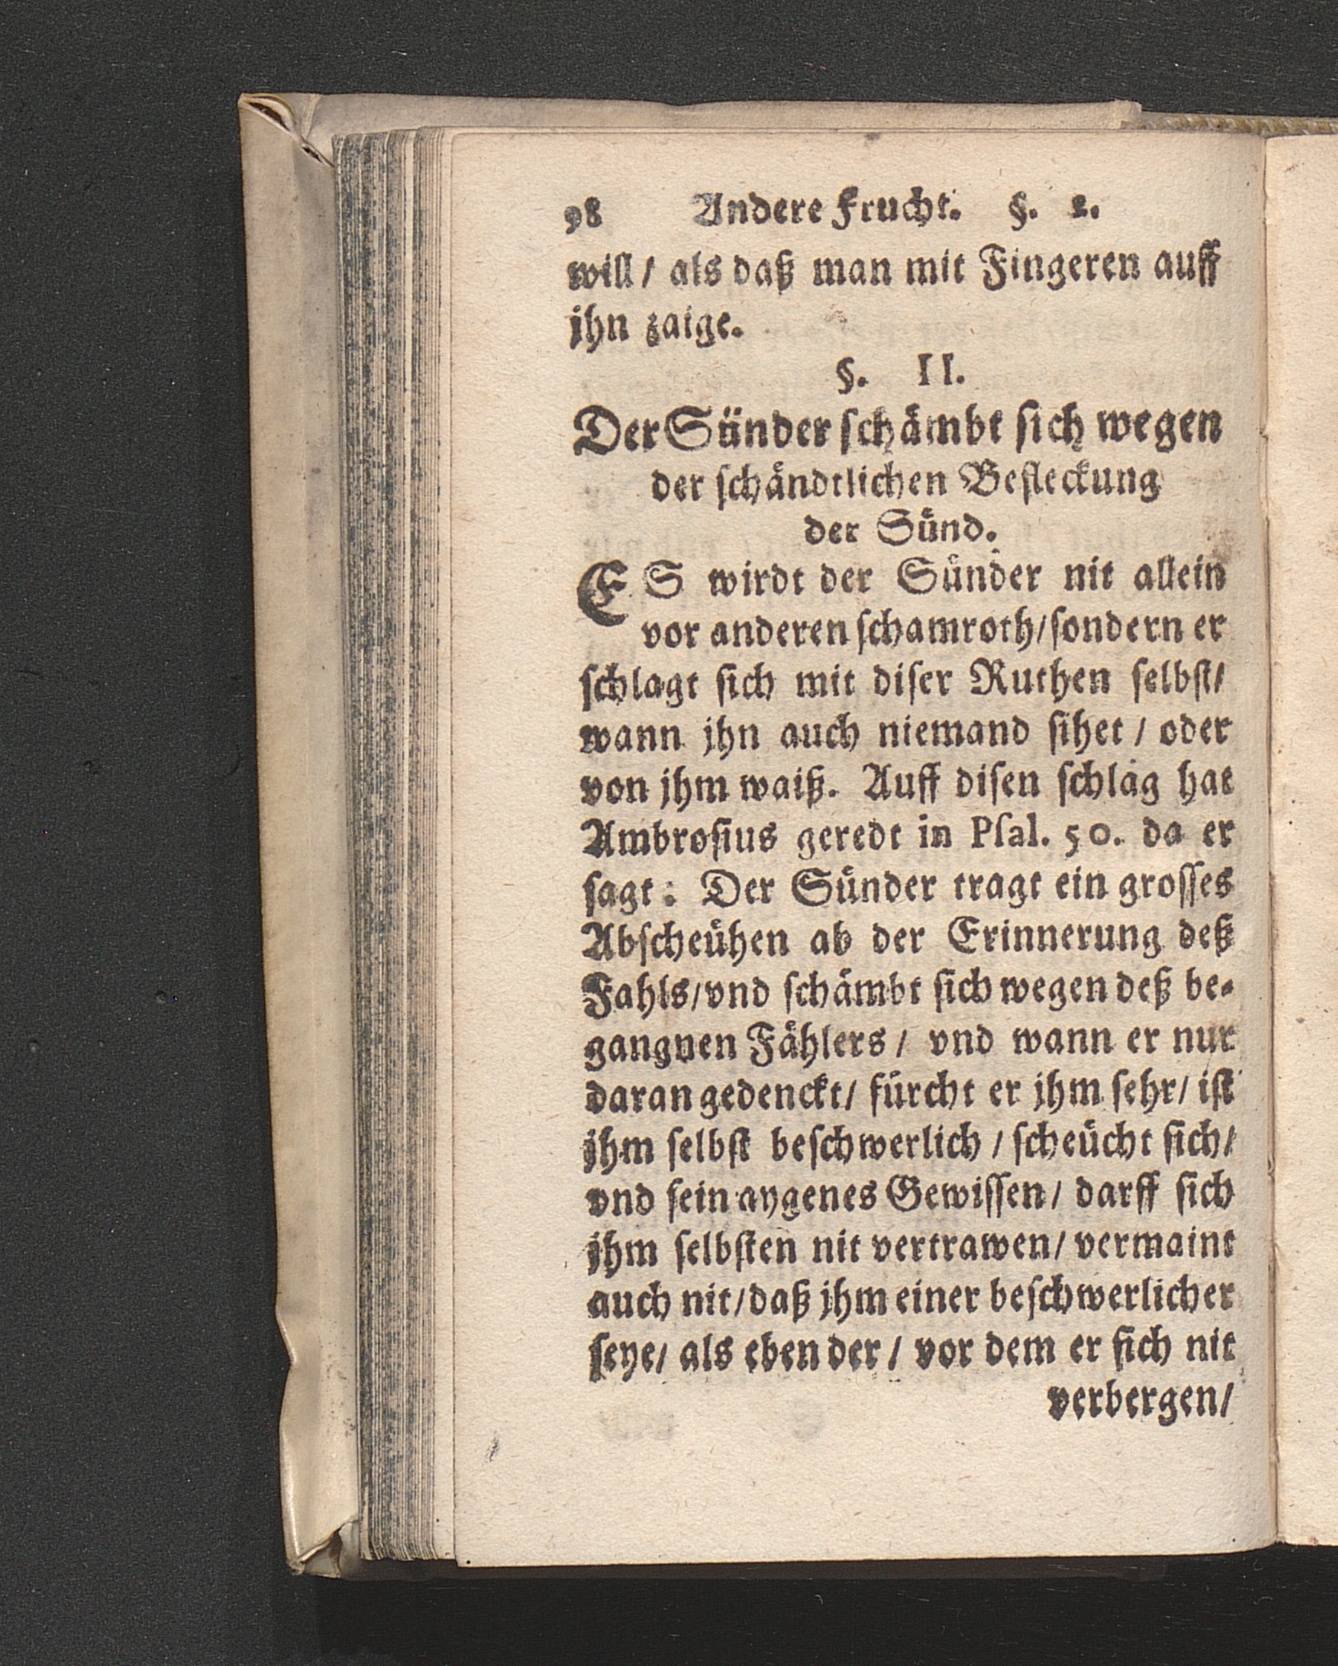 98 Andere Frucht. §. 2.
will / als daß man mit Fingeren auff
jhn zaige.
§. II.
Der Sünder schämbt sich wegen
der schändtlichen Befleckung
der Sünd.
ES wirdt der Sünder nit allein
vor anderen schamroth/sondern er
schlagt sich mit diser Ruthen selbst/
wann jhn auch niemand sihet / oder
von jhm waiß. Auff disen schlag hat
Ambrosius geredt in Psal. 50. da er
sagt: Der Sünder tragt ein grosses
Abscheühen ab der Erinnerung deß
Fahls/vnd schämbt sich wegen deß be-
gangnen Fählers / vnd wann er nur
daran gedenckt/ fürcht er jhm sehr/ ist
jhm selbst beschwerlich / scheücht sich/
vnd sein aygenes Gewissen/ darff sich
jhm selbsten nit vertrawen/ vermaint
auch nit/daß jhm einer beschwerlicher
seye/ als eben der / vor dem er sich nit
verbergen/